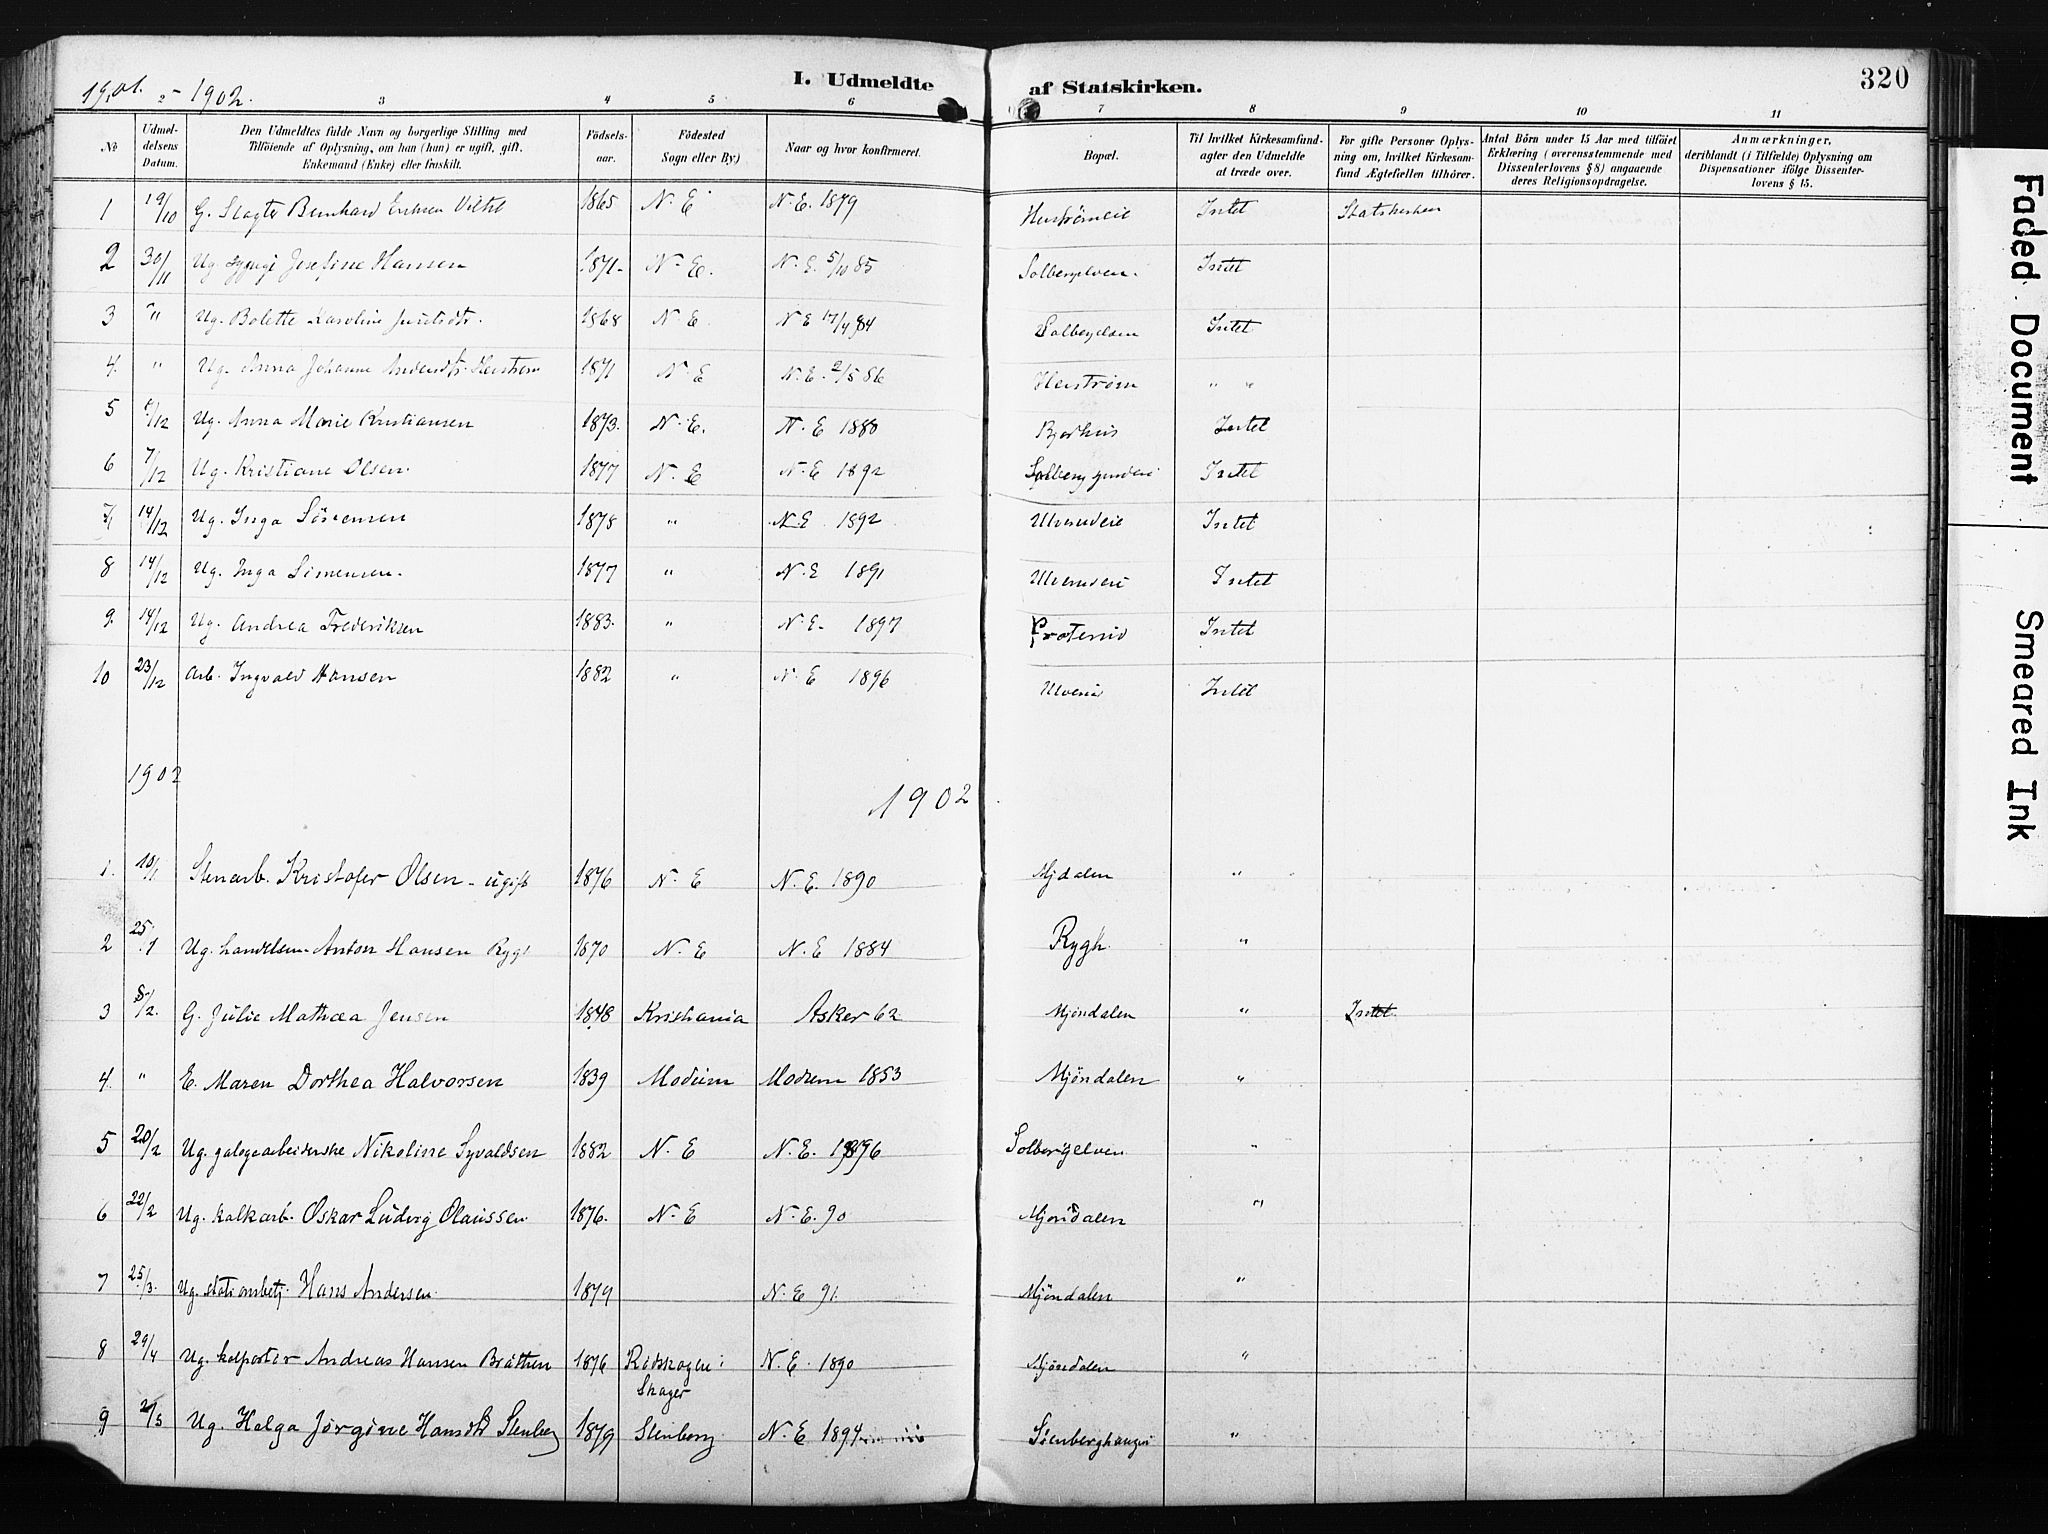 1901 - 1902.
I. Udmeldte af Statskirken.
320
2 3 4 5 6 7 8 9 10 11
№
Udmeldelsens Datum.
Den Udmeldtes fulde Navn og borgerlige Stilling med
Tilföiende af Oplysning, om han (hun) er ugift, gift,
Enkemand (Enke) eller fraskilt.
Födselsaar.
Födested
Sogn eller By.)
Naar og hvor konfirmeret.
Bopæl.
Til hvilket Kirkesamfund-
agter den Udmeldte
at træde over.
For gifte Personer Oplys-
ning om, hvilket Kirkesam-
fund Ægtefællen tilhörer.
Antal Börn under 15 Aar med tilföiet
Erklæring (overensstemmende med
Dissenterlovens § 8) angaaende
deres Religionsopdragelse.
Anmærkninger,
deriblandt (i Tilfælde) Oplysning om
Dispensationer ifölge Dissenter-
lovens § 15.
1 19/10 G. Slagter Bernhard 1865 N. E N. E. 1879 Intet Statskirken
2 30/11 Ug. Josefine Hansen 1871 N. E. N. E. 5/10 85 Solbergelven. Intet
3 " Ug. Bolette Karoline 1868 N. E N E 17/4 84 Solbergelven Intet
4. " Ug. Anna Johanne 1871 N. E N. E. 2/5 86 Herstrøm " "
5 /12 Ug. Anna Marie Kristiansen 1873. N. E. N. E 1880 Intet
6 7/12 Ug. Kristiane Olsen. 1877 N. E N. E 1892 Intet
7 14/12 Ug. Inga Sörensen 1878 " N. E 1892 Ulverudeie Intet
8 14/12 Ug. Inga Simensen. 1877 " N. E 1891 Ulverudeie Intet
9. 14/12 Ug. Andrea Frederiksen 1883. " N. E. 1897 Intet
10 23/12 Arb. Ingvald Hansen 1882 " N. E 1896 Intet
1902
1902
1. 10/1 Stenarb. Kristofer Olsen - ugift 1876 N. E N. E. 1890 Mjdalen "
2 25/1 Ug. Anton Hansen Rygh 1870 N. E N. E 1884 Rygh. "
3 5/2. G. Julie Mathea Jensen 1848 Kristiania Asker 62 Mjöndalen " Intet
4. " E. Maren Dorthea Halvorsen 1839 Modum Modum 1853 Mjöndalen "
5 20/2 Ug. galogearbeiderske Nikoline Syvaldsen 1882 N. E N. E. 1896 Solbergelven "
6 22/2 Ug. kalkarb. Oskar Ludvig Olaussen 1876. N. E N. E. 90 Mjöndalen "
7 25/3. Ug. stationsbetj. Hans Andersen. 1879 N. E 91. Mjöndalen "
8 29/4 Ug. kolportör Andreas Hansen Bråthen 1876 Rödskogen i Skoger N. E. 1890 Mjöndalen "
9 2/5 Ug. Helga Jörgine Hansdtr Stenberg 1879 Stenberg N. E 1894 "
Faded Document
Smeared Ink